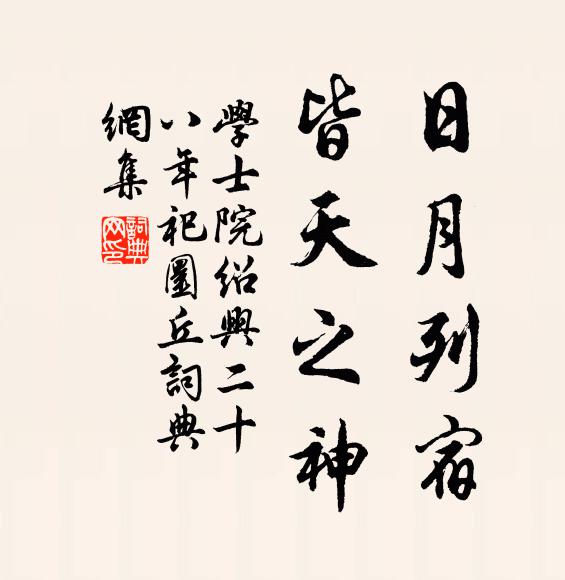 日月列宿
皆天之神
學士院紹興二十
八年祀圜丘詞典
網集
詞典
网印